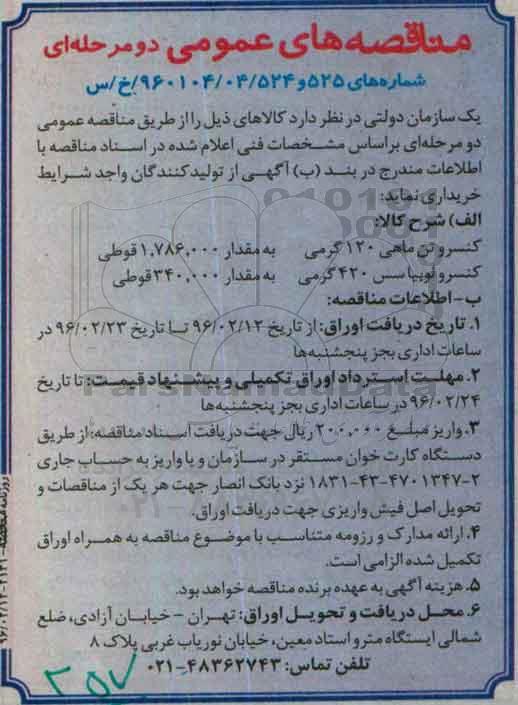 مناقصه‌های عمومی دو مرحله‌ای
شماره‌های ۵۲۵ و ۹۶۰۱۰۴/۰۴/۵۲۴/خ/س
یک سازمان دولتی در نظر دارد کالاهای ذیل را از طریق مناقصه عمومی
دو مرحله‌ای براساس مشخصات فنی اعلام شده در اسناد مناقصه با
اطلاعات مندرج در بند (ب) آگهی از تولیدکنندگان واجد شرایط
خریداری نماید:
الف) شرح کالا:
کنسرو تن ماهی ۱۲۰ گرمی به مقدار ۱,۷۸۶,۰۰۰ قوطی
کنسرو لوبیا سس ۴۲۰ گرمی به مقدار ۳۴۰,۰۰۰ قوطی
ب- اطلاعات مناقصه:
۱. تاریخ دریافت اوراق: از تاریخ ۹۶/۰۲/۱۲ تا تاریخ ۹۶/۰۲/۲۳ در
ساعات اداری بجز پنجشنبه‌ها
۲. مهلت استرداد اوراق تکمیلی و پیشنهاد قیمت: تا تاریخ
۹۶/۰۲/۲۴ در ساعات اداری بجز پنجشنبه‌ها
۳. واریز مبلغ ۲۰۰,۰۰۰ ریال جهت دریافت اسناد مناقصه: از طریق
دستگاه کارت خوان مستقر در سازمان و یا واریز به حساب جاری
۱۸۳۱-۴۳-۴۷۰۱۳۴۷-۲ نزد بانک انصار جهت هر یک از مناقصات و
تحویل اصل فیش واریزی جهت دریافت اوراق.
۴. ارائه مدارک و رزومه متناسب با موضوع مناقصه به همراه اوراق
تکمیل شده الزامی است.
۵. هزینه آگهی به عهده برنده مناقصه خواهد بود.
۶. محل دریافت و تحویل اوراق: تهران - خیابان آزادی، ضلع
شمالی ایستگاه مترو استاد معین، خیابان نوریاب غربی پلاک ۸
تلفن تماس: ۴۸۳۶۲۷۴۳-۰۲۱
ParsNamadData